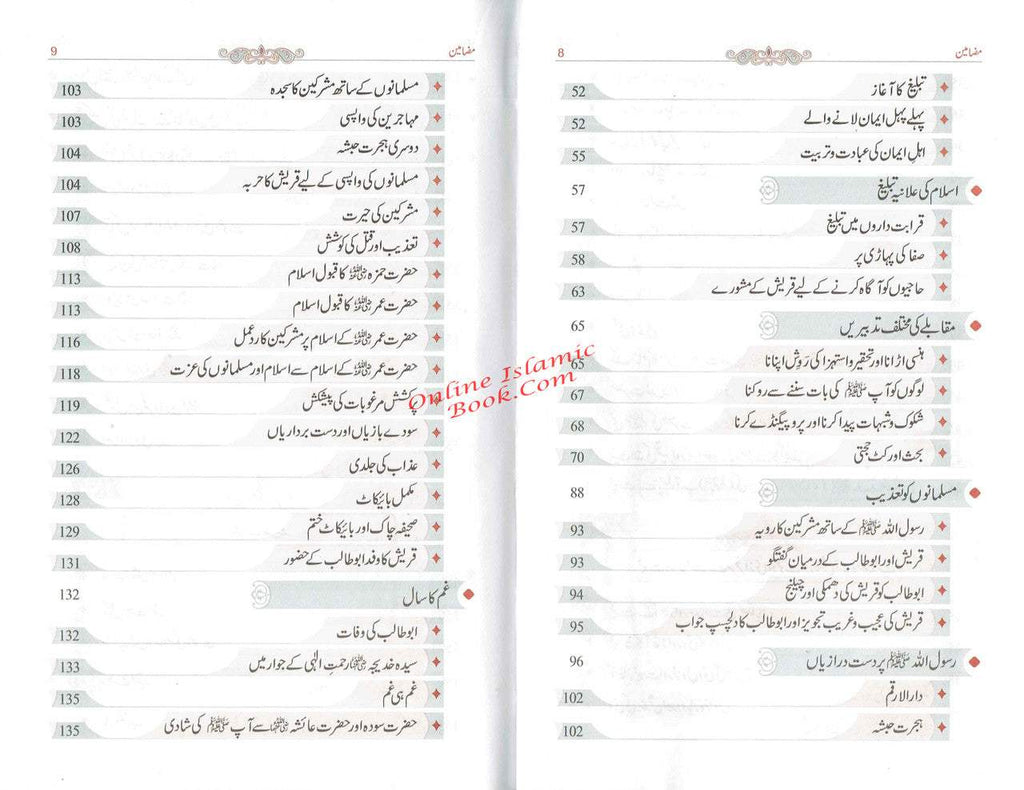 مضامین 8
تبلیغ کا آغاز 52
پہلے پہل ایمان لانے والے 52
اہلِ ایمان کی عبادت و تربیت 55
اسلام کی علانیہ تبلیغ 57
قرابت داروں میں تبلیغ 57
صفا کی پہاڑی پر 58
حاجیوں کو آگاہ کرنے کے لیے قریش کے مشورے 63
مقابلے کی مختلف تدبیریں 65
ہنسی اڑانا اور تحقیر و استہزا کی رَوِش اپنانا 65
لوگوں کو آپ ﷺ کی بات سننے سے روکنا 67
شکوک و شبہات پیدا کرنا اور پروپیگنڈے کرنا 68
بحث اور کٹ حجتی 70
مسلمانوں کو تعذیب 88
رسول اللہ ﷺ کے ساتھ مشرکین کا رویہ 93
قریش اور ابوطالب کے درمیان گفتگو 93
ابوطالب کو قریش کی دھمکی اور چیلنج 94
قریش کی عجیب و غریب تجویز اور ابوطالب کا دلچسپ جواب 95
رسول اللہ ﷺ پر دست درازیاں 96
دارالارقم 102
ہجرت حبشہ 102
مضامین 9
مسلمانوں کے ساتھ مشرکین کا سجدہ 103
مہاجرین کی واپسی 103
دوسری ہجرت حبشہ 104
مسلمانوں کی واپسی کے لیے قریش کا حربہ 104
مشرکین کی حیرت 107
تعذیب اور قتل کی کوشش 108
حضرت حمزہ رضی اللہ عنہ کا قبول اسلام 113
حضرت عمر رضی اللہ عنہ کا قبول اسلام 113
حضرت عمر رضی اللہ عنہ کے اسلام پر مشرکین کا ردعمل 116
حضرت عمر رضی اللہ عنہ کے اسلام سے اسلام اور مسلمانوں کی عزت 118
پرکشش مرغوبات کی پیشکش 119
سودے بازیاں اور دست برداریاں 122
عذاب کی جلدی 126
مکمل بائیکاٹ 128
صحیفہ چاک اور بائیکاٹ ختم 129
قریش کا وفد ابوطالب کے حضور 131
غم کا سال 132
ابوطالب کی وفات 132
سیدہ خدیجہ رضی اللہ عنہا رحمتِ الٰہی کے جوار میں 133
غم ہی غم 135
حضرت سودہ اور حضرت عائشہ رضی اللہ عنہا سے آپ ﷺ کی شادی 135
Online Islamic
Book.Com